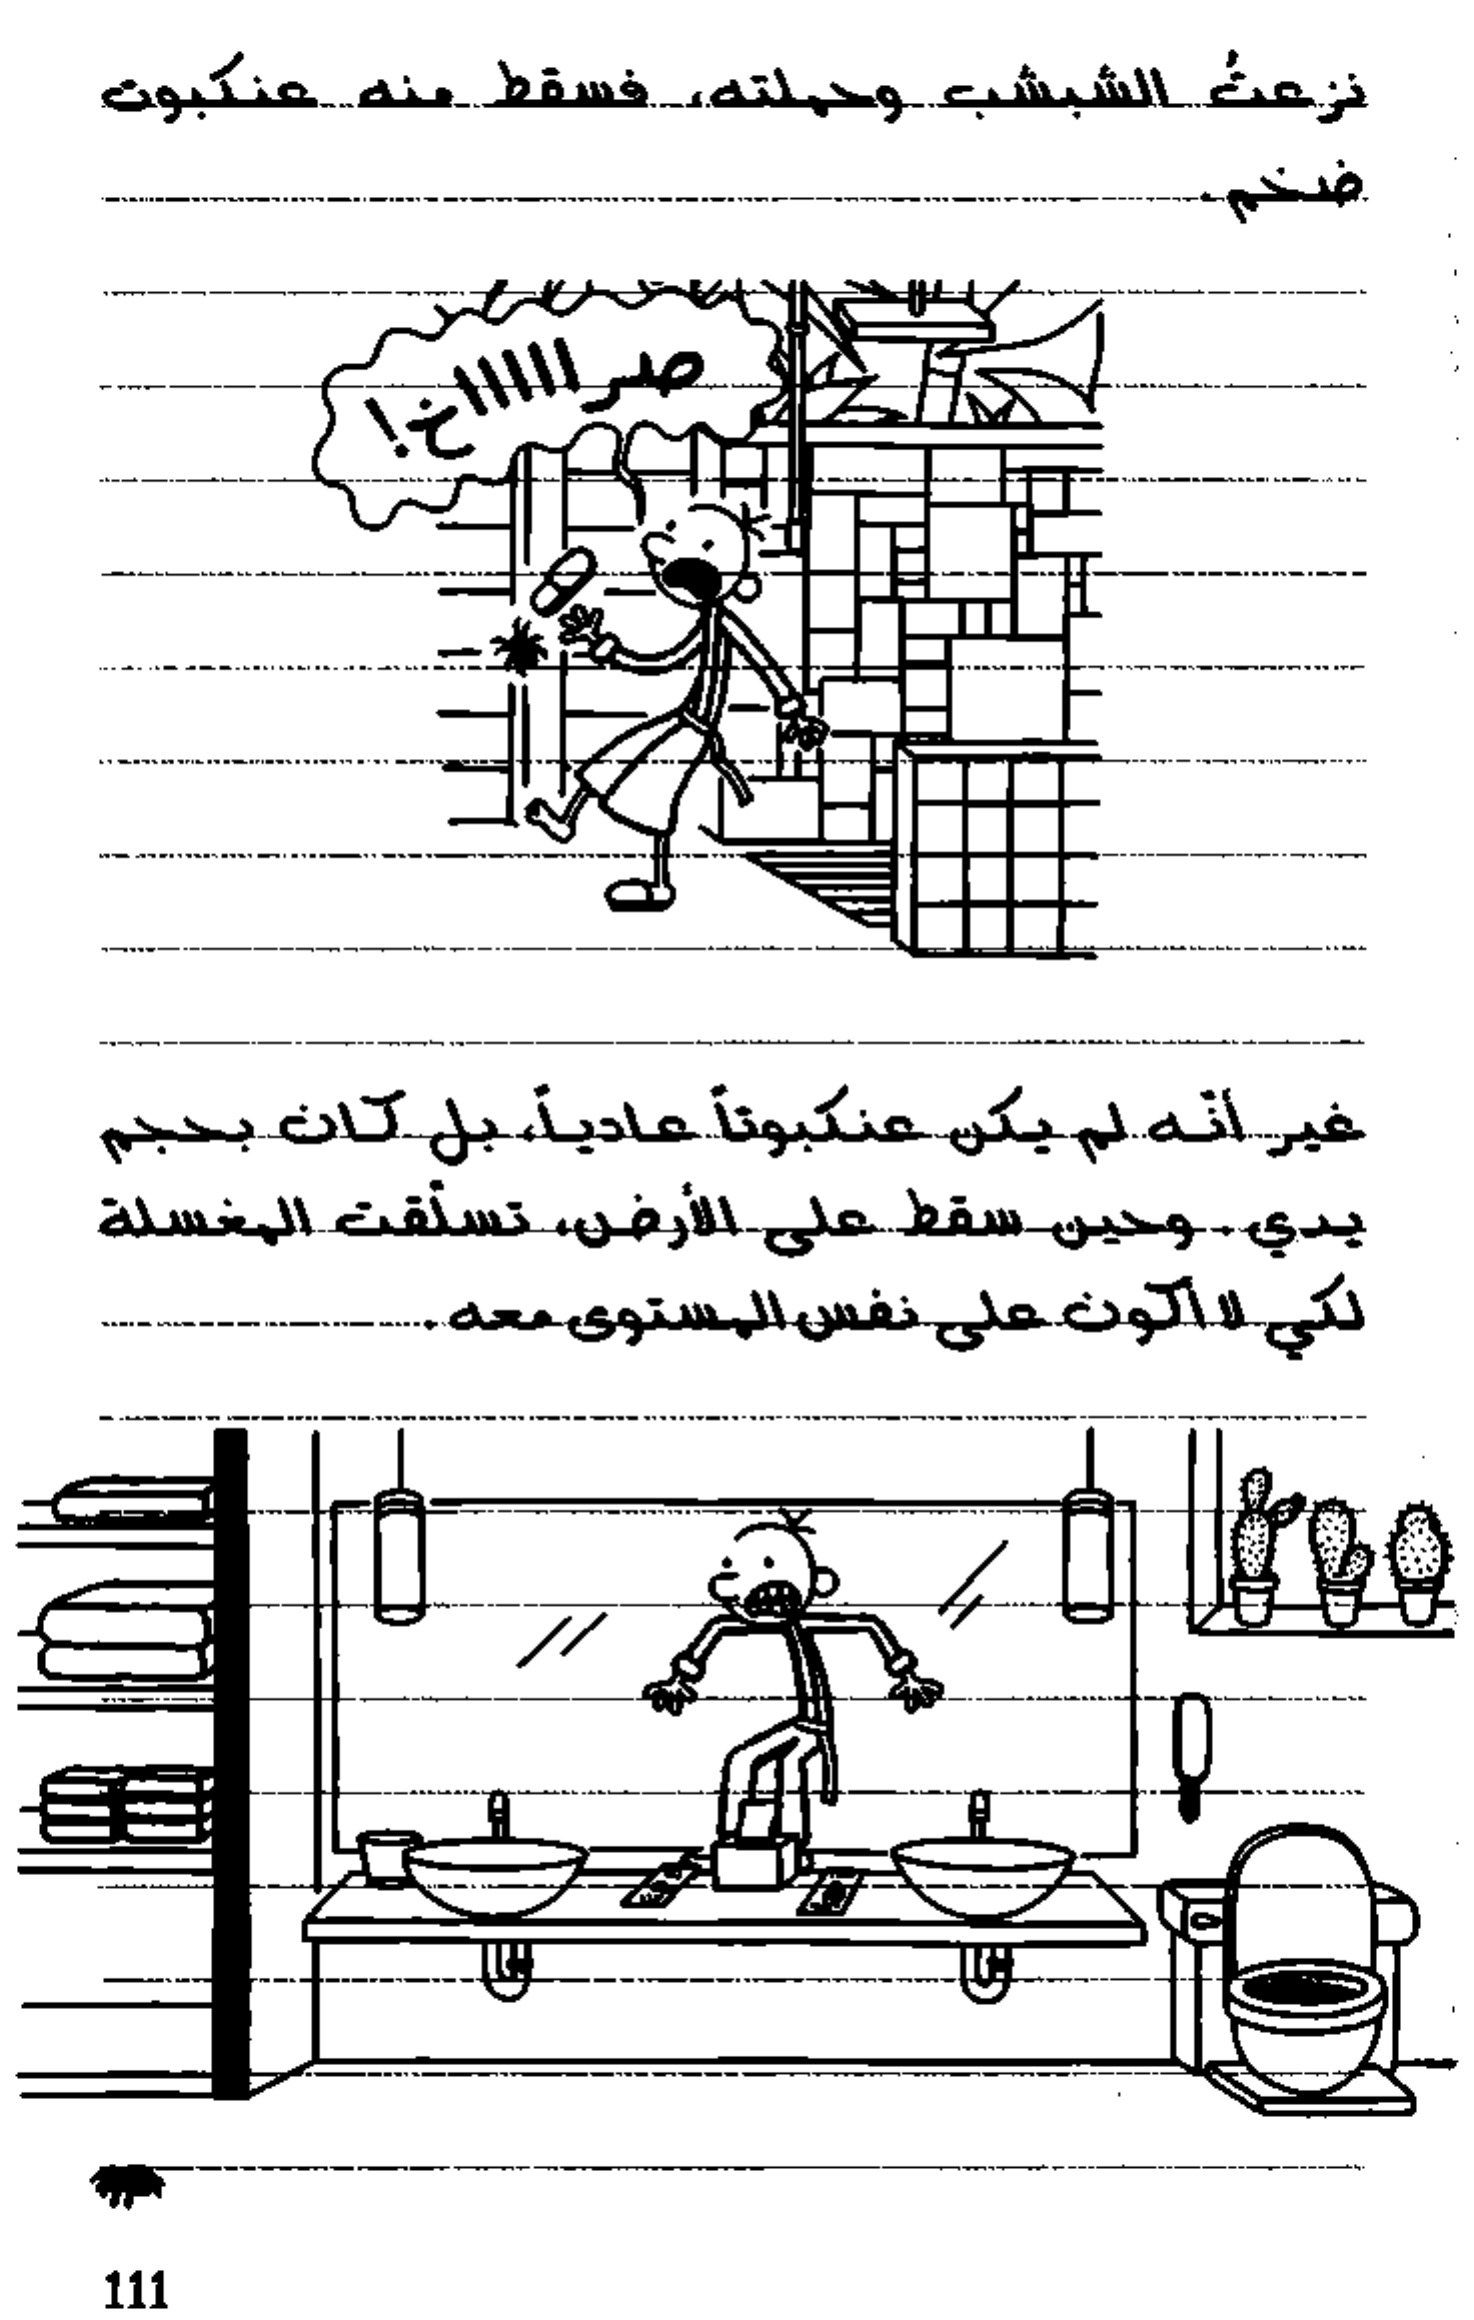 نزعتُ الشبشب وحملته، فسقط منه عنكبوت
ضخم.
صراااااخ!
غير أنّه لم يكن عنكبوتاً عادياً، بل كان بحجم
يدي. وحين سقط على الأرض، تسلّقت المغسلة
لكي لا أكون على نفس المستوى معه.
111